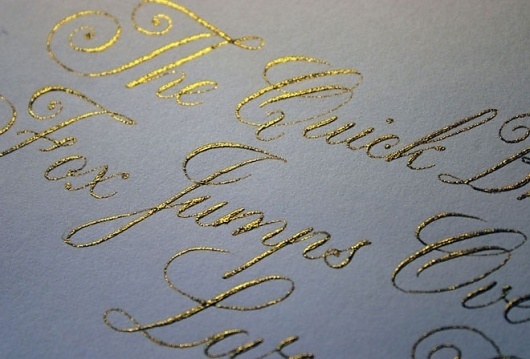 The Quick Br
Fox Jumps Ove
Laz